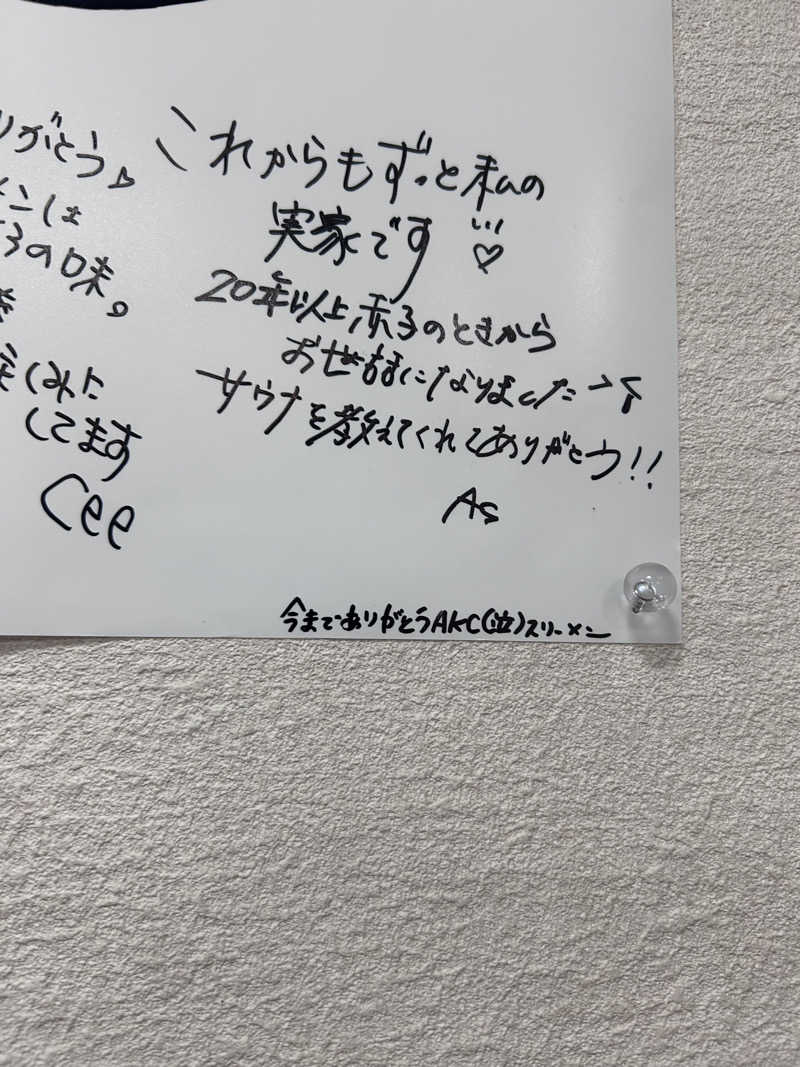 りがとう
これからもずっと私の
実家です♡
20年以上赤子のときから
お世話になりました
サウナを教えてくれてありがとう!!
As
の味。
くみた
してます
Cee
今までありがとうAKC(泣)スリーメン